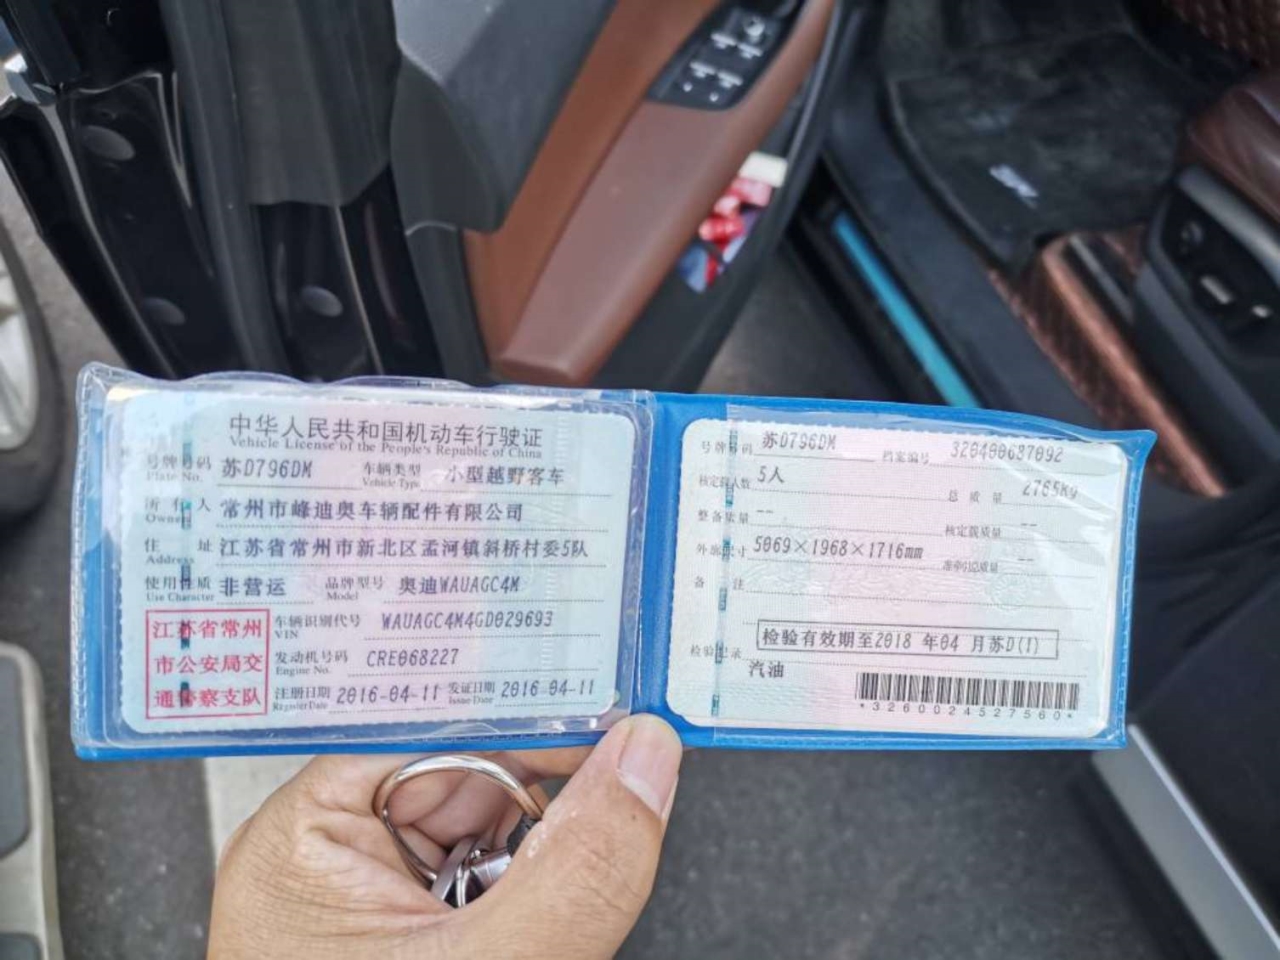 中华人民共和国机动车行驶证
Vehicle License of the People's Republic of China
号牌号码 苏D796DM 车辆类型 小型越野客车
Plate No. Vehicle Type
所有人 常州市峰迪奥车辆配件有限公司
Owner
住址 江苏省常州市新北区孟河镇斜桥村委5队
Address
使用性质 非营运 品牌型号 奥迪WAUAGC4M
Use Character Model
江苏省常州市公安局交通警察支队
车辆识别代号 WAUAGC4M4GD029693
VIN
发动机号码 CRE068227
Engine No.
注册日期 2016-04-11 发证日期 2016-04-11
Register Date Issue Date
号牌号码 苏D796DM 档案编号 320400687092
核定载人数 5人 总质量 2765Kg
整备质量 -- 核定载质量 --
外廓尺寸 5069×1968×1716mm 准牵引总质量 --
备注
检验有效期至2018 年04 月苏D(1)
检验记录
汽油
*3260024527560*